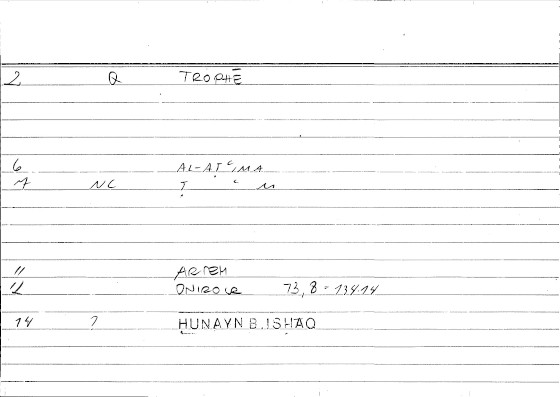 2 Q TROPHĒ
6 AL-AṬʿIMA
7 NC Ṭ ʿ M
11 ARTEM
12 ONIROCR 73,8 = 134.14
14 ? ḤUNAYN B. ISḤĀQ